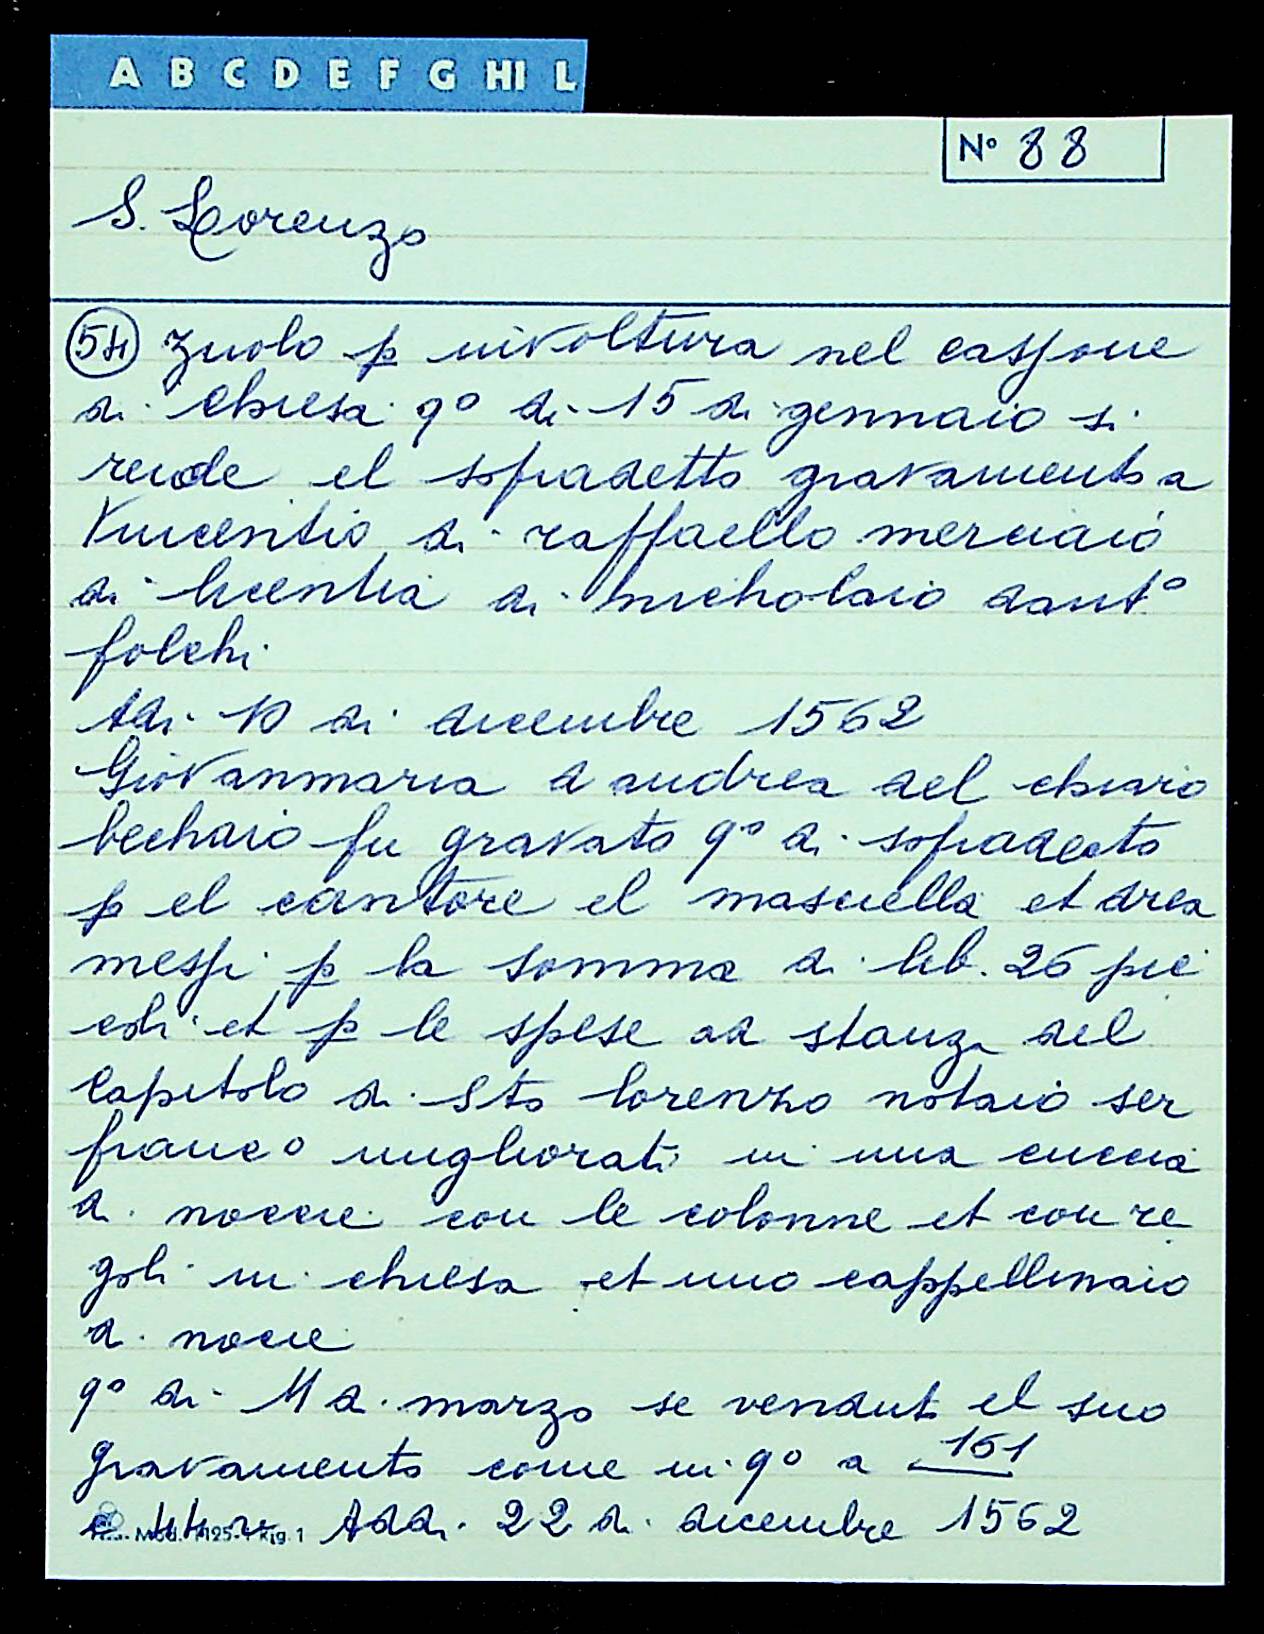 A B C D E F G HI L
N° 88
S. Lorenzo
54 zuolo p involtura nel cassone
di chiesa q° di 15 di gennaio si
rende el sopradetto gravamento a
Vincentio di raffaello merciaio
di licentia di nicholaio dant°
folchi
Adi 10 di dicembre 1562
Giovanmaria d andrea del chiaro
bechaio fu gravato q° di sopradecto
p el cantore el mascella et drea
messi p la somma di lib. 26 pic
coli et p le spese ad stanza del
Capitolo di Sto lorenzo notaio ser
franc° migliorati in una cuccia
di nocce con le colonne et con re
goli in chiesa et uno cappellinaio
di noce
q° di 11 di marzo se venduto el suo
gravamento come in q° a 161
Mod. 1125-1 Rig. 1 Addi 22 di dicembre 1562